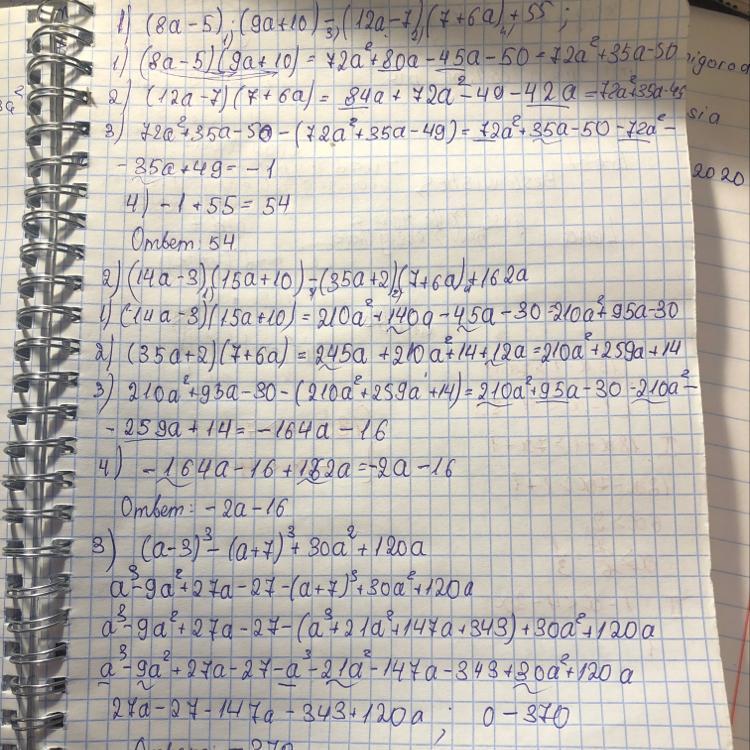 1) (8a-5)·(9a+10)-(12a-7)(7+6a)+55;
1) (8a-5)(9a+10)=72a²+80a-45a-50=72a²+35a-50
2) (12a-7)(7+6a)=84a+72a²-49-42a=72a²+35a-49
3) 72a²+35a-50-(72a²+35a-49)=72a²+35a-50-72a²-
-35a+49=-1
4) -1+55=54
Ответ: 54
2) (14a-3)(15a+10)-(35a+2)(7+6a)+162a
1) (14a-3)(15a+10)=210a²+140a-45a-30=210a²+95a-30
2) (35a+2)(7+6a)=245a+210a²+14+12a=210a²+259a+14
3) 210a²+95a-30-(210a²+259a+14)=210a²+95a-30-210a²-
-259a+14=-164a-16
4) -164a-16+162a=-2a-16
Ответ: -2a-16
3) (a-3)³-(a+7)³+30a²+120a
a³-9a²+27a-27-(a+7)³+30a²+120a
a³-9a²+27a-27-(a³+21a²+147a+343)+30a²+120a
a³-9a²+27a-27-a³-21a²-147a-343+30a²+120a
27a-27-147a-343+120a; 0-370
Ответ: -370
sia
2020